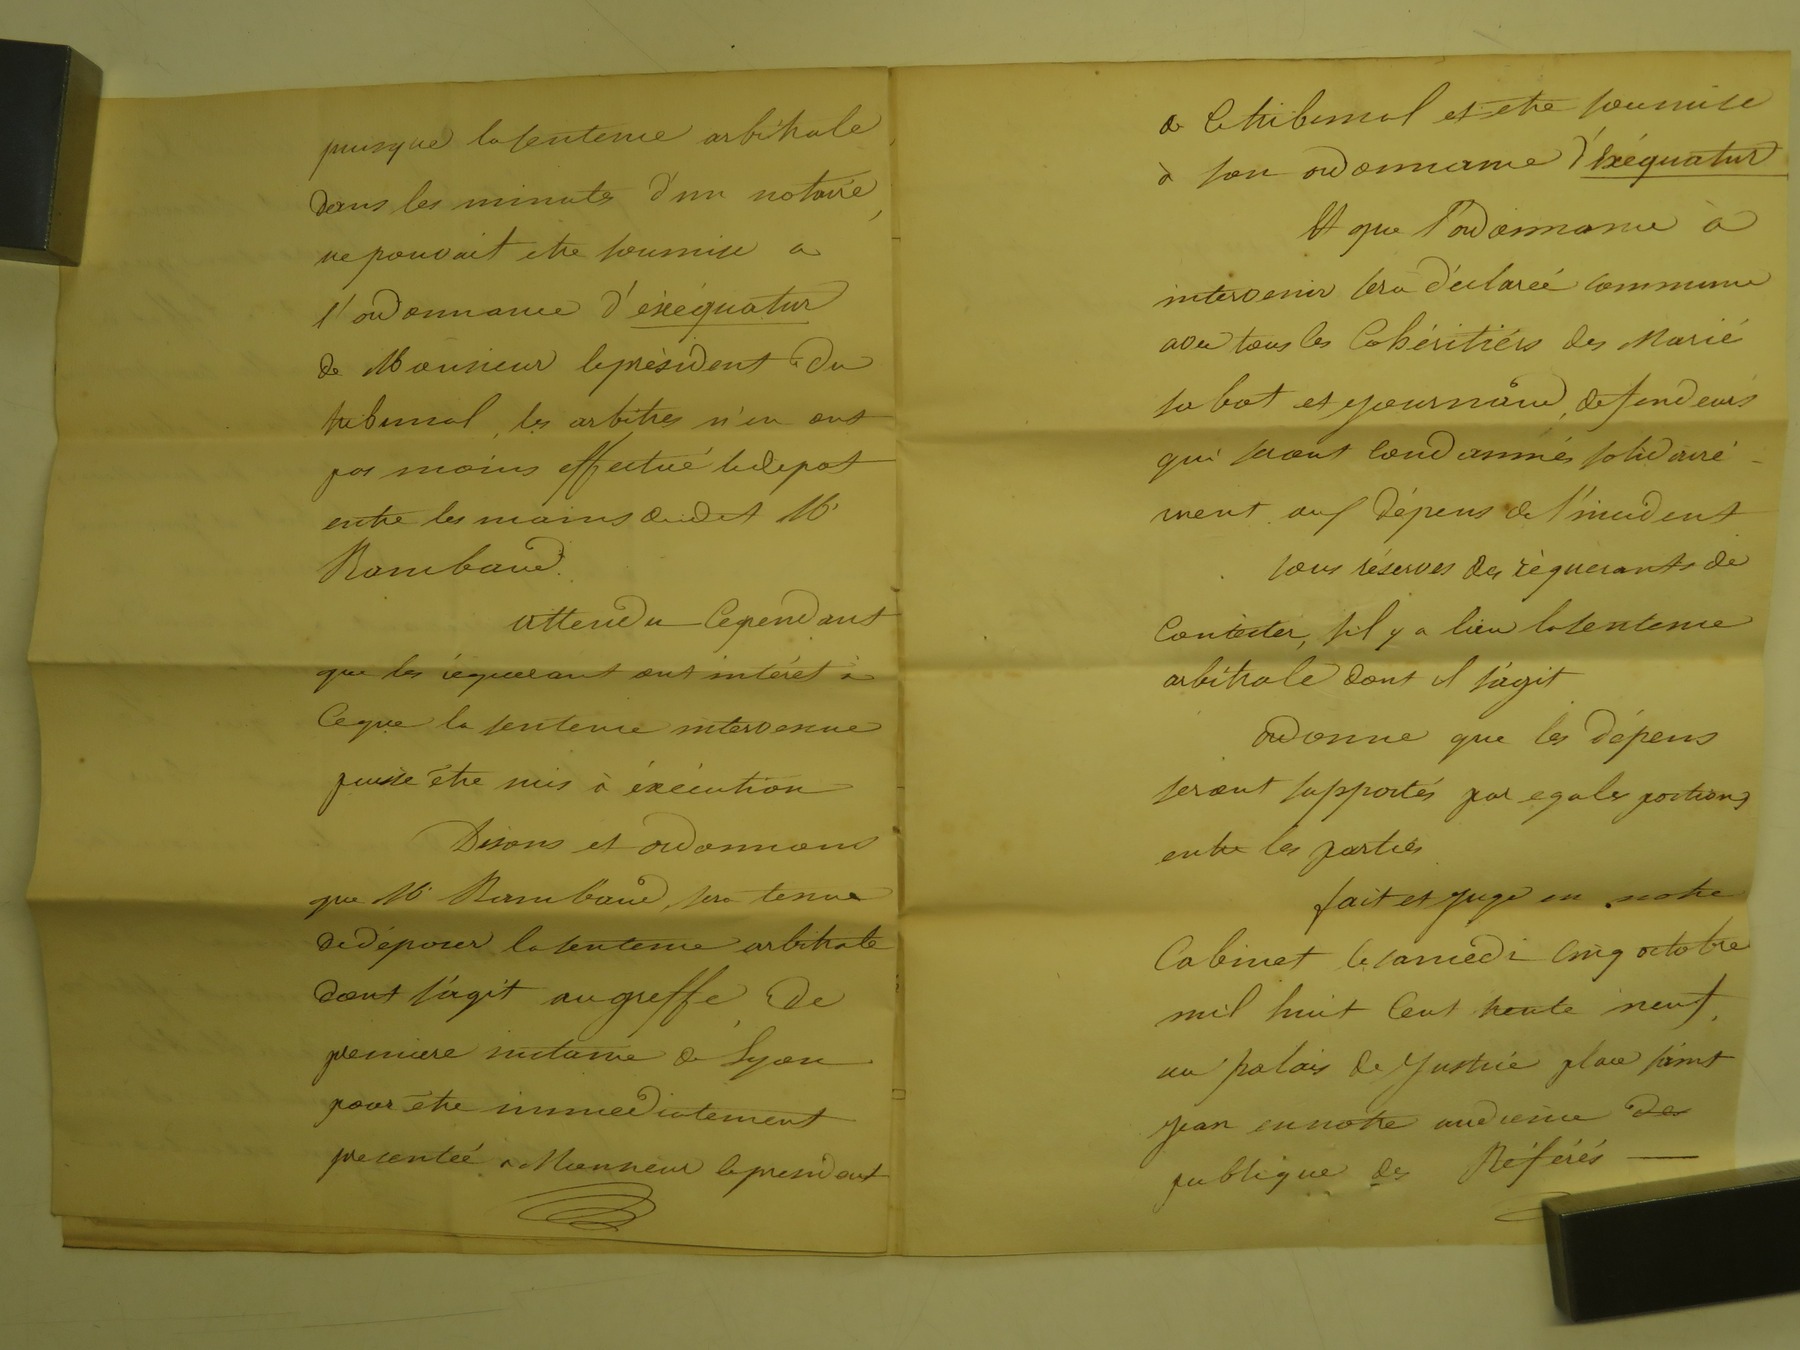 puisque la sentence arbitrale
dans les minutes d'un notaire,
ne pouvait etre soumise a
l'ordonnance d'éxéquatur
de Monsieur le président du
tribunal, les arbitres n'en ont
pas moins effectué le depot
entre les mains dudit Me
Rambaud.
attendu Cependant
que les requerant ont intéret à
Ceque la sentence intervenue
puisse être mis à éxécution
Disons et ordonnons
que Me Rambaud, sera tenue
de déposer la sentence arbitrale
dont s'agit au greffe de
premiere instance de Lyon
pour être immediatement
presentée à Monsieur le president
de Ce tribunal et etre soumise
à son ordonnance d'éxéquatur
Et que l'ordonnance à
intervenir sera déclareé commune
avec tous les Cohéritiérs des Marié
sabot et journaud, defendeurs
qui seront Condamnés solidairé-
ment aux dépens de l'incident
sous réserves des réquerants de
Contester, s'il y a lieu la sentence
arbitrale dont il s'agit
ordonne que les dépens
seront supportés par egales portions
entre les parties
fait et jugé en notre
Cabinet le samedi Cinq octobre
mil huit Cent trente neuf,
au palais de Justice place saint
jean en notre audience des
publique des Référés —